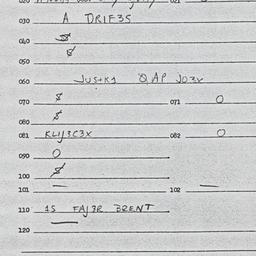 030 A DRIF3S
040 $
$
050
060 JUS+K1 QAP JO3V
070 $ 071 0
080 $
081 KLIJ3C3X 082 0
090 0
100 $
101 — 102 —
110 1S FAJ3R 3RENT
120